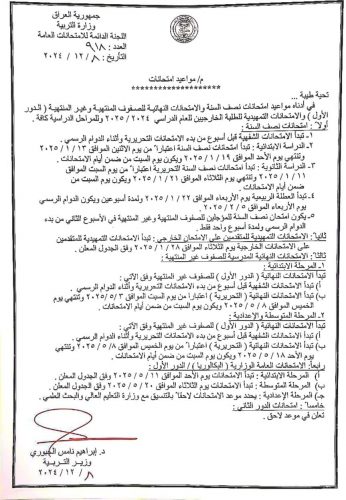 جمهورية العراق
وزارة التربية
اللجنة الدائمة للامتحانات العامة
العدد : ٩١٨
التاريخ : ٨ / ١٢ / ٢٠٢٤
م/ مواعيد امتحانات
********************
تحية طيبة ...
في أدناه مواعيد امتحانات نصف السنة والامتحانات النهائية للصفوف المنتهية وغير المنتهية (الدور
الأول) والامتحانات التمهيدية للطلبة الخارجيين للعام الدراسي ٢٠٢٤ / ٢٠٢٥ وللمراحل الدراسية كافة .
أولاً : امتحانات نصف السنة :
١- تبدأ الامتحانات الشفهية قبل أسبوع من بدء الامتحانات التحريرية وأثناء الدوام الرسمي .
٢- الدراسة الابتدائية : تبدأ امتحانات نصف السنة اعتباراً من يوم الاثنين الموافق ١٣ / ١ / ٢٠٢٥
وتنتهي يوم الاحد الموافق ١٩ / ١ / ٢٠٢٥ ويكون يوم السبت من ضمن أيام الامتحانات .
٣- الدراسة الثانوية : تبدأ امتحانات نصف السنة اعتباراً من يوم السبت الموافق ١١ / ١ / ٢٠٢٥
وتنتهي يوم الثلاثاء الموافق ٢١ / ١ / ٢٠٢٥ ويكون يوم السبت من
ضمن أيام الامتحانات .
٤- تبدأ العطلة الربيعية يوم الأربعاء الموافق ٢٢ / ١ / ٢٠٢٥ ولمدة أسبوعين ويكون الدوام الرسمي
يوم الأربعاء الموافق ٥ / ٢ / ٢٠٢٥ .
٥- يكون امتحان نصف السنة للمؤجلين للصفوف المنتهية وغير المنتهية في الأسبوع الثاني من بدء
الدوام الرسمي ولمدة أسبوع واحد فقط .
ثانياً: الامتحانات التمهيدية للمتقدمين على الامتحان الخارجي : تبدأ الامتحانات التمهيدية للمتقدمين
على الامتحانات الخارجية يوم الثلاثاء الموافق ٢٨ / ١ / ٢٠٢٥ وفق الجدول المعلن .
ثالثاً: الامتحانات النهائية المدرسية للصفوف غير المنتهية :
١- المرحلة الابتدائية :
تبدأ الامتحانات النهائية (الدور الأول) للصفوف غير المنتهية وفق الآتي :
أ) تبدأ الامتحانات الشفهية قبل أسبوع من بدء الامتحانات التحريرية وأثناء الدوام الرسمي .
ب) تبدأ الامتحانات النهائية التحريرية اعتباراً من يوم السبت الموافق ٣ / ٥ / ٢٠٢٥ وتنتهي يوم
الخميس الموافق ٨ / ٥ / ٢٠٢٥ ويكون يوم السبت من ضمن أيام الامتحانات .
٢- المرحلة المتوسطة والإعدادية :
تبدأ الامتحانات النهائية (الدور الأول) للصفوف غير المنتهية وفق الآتي :
أ) تبدأ الامتحانات الشفهية قبل أسبوع من بدء الامتحانات التحريرية وأثناء الدوام الرسمي .
ب) تبدأ الامتحانات النهائية (التحريرية) اعتباراً من يوم الخميس الموافق ٨ / ٥ / ٢٠٢٥ وتنتهي
يوم الأحد الموافق ١٨ / ٥ / ٢٠٢٥ ويكون يوم السبت من ضمن أيام الامتحانات .
رابعاً: الامتحانات العامة الوزارية (البكالوريا) / الدور الأول :
أ) المرحلة الابتدائية : تبدأ الامتحانات يوم الأحد الموافق ١١ / ٥ / ٢٠٢٥ وفق الجدول المعلن .
ب) المرحلة المتوسطة : تبدأ الامتحانات يوم الثلاثاء الموافق ٢٠ / ٥ / ٢٠٢٥ وفق الجدول المعلن .
ج) المرحلة الإعدادية : يحدد موعد الامتحانات لاحقاً بالتنسيق مع وزارة التعليم العالي والبحث العلمي .
خامساً: امتحانات الدور الثاني :
تعلن في موعد لاحق .
د. إبراهيم نامس الجبوري
وزير التربية
٨ / ١٢ / ٢٠٢٤